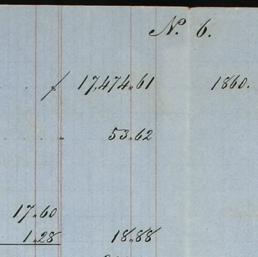 No. 6.
17,474.61 1860.
53.62
17.60
1.28 18.88